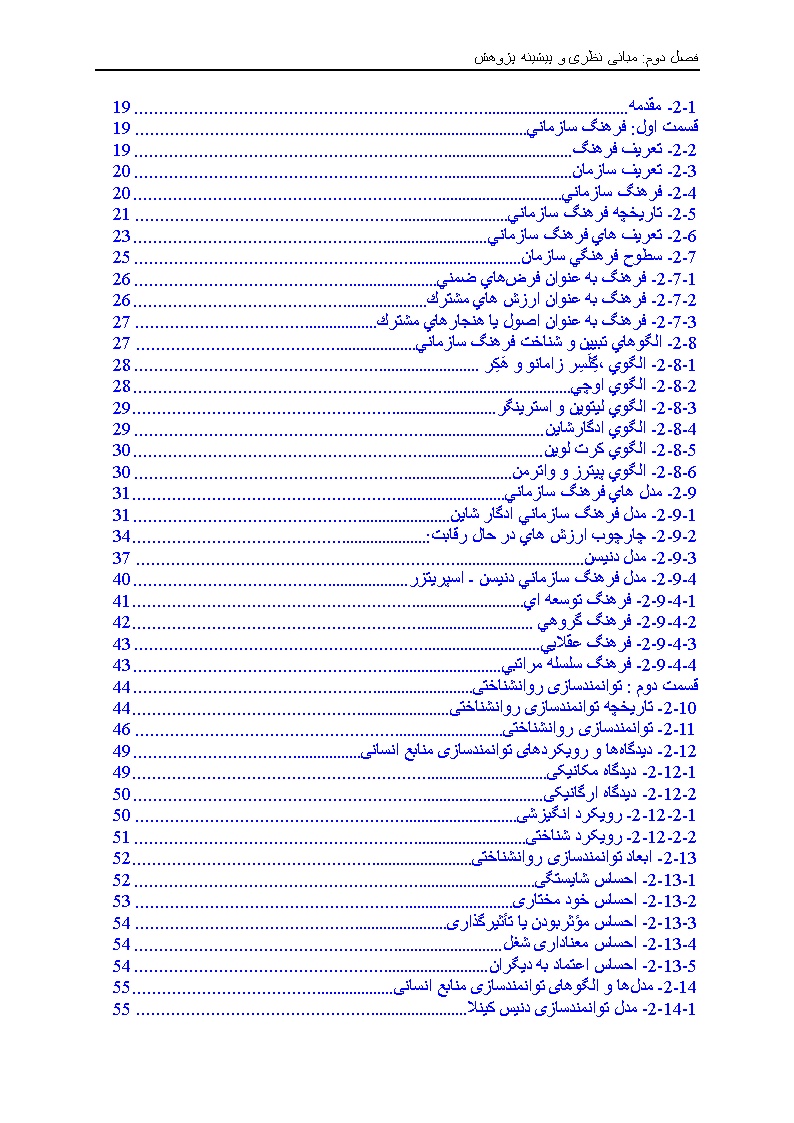 فصل دوم: مبانی نظری و پیشینه پژوهش
2-1- مقدمه 19
قسمت اول: فرهنگ سازماني 19
2-2- تعریف فرهنگ 19
2-3- تعریف سازمان 20
2-4- فرهنگ سازماني 20
2-5- تاریخچه فرهنگ سازماني 21
2-6- تعریف هاي فرهنگ سازماني 23
2-7- سطوح فرهنگي سازمان 25
2-7-1- فرهنگ به عنوان فرض‌هاي ضمني 26
2-7-2- فرهنگ به عنوان ارزش هاي مشترك 26
2-7-3- فرهنگ به عنوان اصول یا هنجارهاي مشترك 27
2-8- الگوهاي تبیین و شناخت فرهنگ سازماني 27
2-8-1- الگوي ،گِلَسِر زامانو و هَكِر 28
2-8-2- الگوي اوچي 28
2-8-3- الگوي لیتوین و استرینگر 29
2-8-4- الگوي ادگارشاین 29
2-8-5- الگوي كرت لوین 30
2-8-6- الگوي پیترز و واترمن 30
2-9- مدل هاي فرهنگ سازماني 31
2-9-1- مدل فرهنگ سازماني ادگار شاین 31
2-9-2- چارچوب ارزش هاي در حال رقابت: 34
2-9-3- مدل دنیسن 37
2-9-4- مدل فرهنگ سازماني دنیسن - اسپریتزر 40
2-9-4-1- فرهنگ توسعه اي 41
2-9-4-2- فرهنگ گروهي 42
2-9-4-3- فرهنگ عقلایي 43
2-9-4-4- فرهنگ سلسله مراتبي 43
قسمت دوم : توانمندسازی روانشناختی 44
2-10- تاریخچه توانمندسازی روانشناختی 44
2-11- توانمندسازی روانشناختی 46
2-12- دیدگاه‌ها و رویکردهای توانمندسازی منابع انسانی 49
2-12-1- دیدگاه مکانیکی 49
2-12-2- دیدگاه ارگانیکی 50
2-12-2-1- رویکرد انگیزشی 50
2-12-2-2- رویکرد شناختی 51
2-13- ابعاد توانمندسازی روانشناختی 52
2-13-1- احساس شایستگی 52
2-13-2- احساس خود مختاری 53
2-13-3- احساس مؤثربودن یا تأثیرگذاری 54
2-13-4- احساس معناداری شغل 54
2-13-5- احساس اعتماد به دیگران 54
2-14- مدل‌ها و الگوهای توانمندسازی منابع انسانی 55
2-14-1- مدل توانمندسازی دنیس کینلا 55